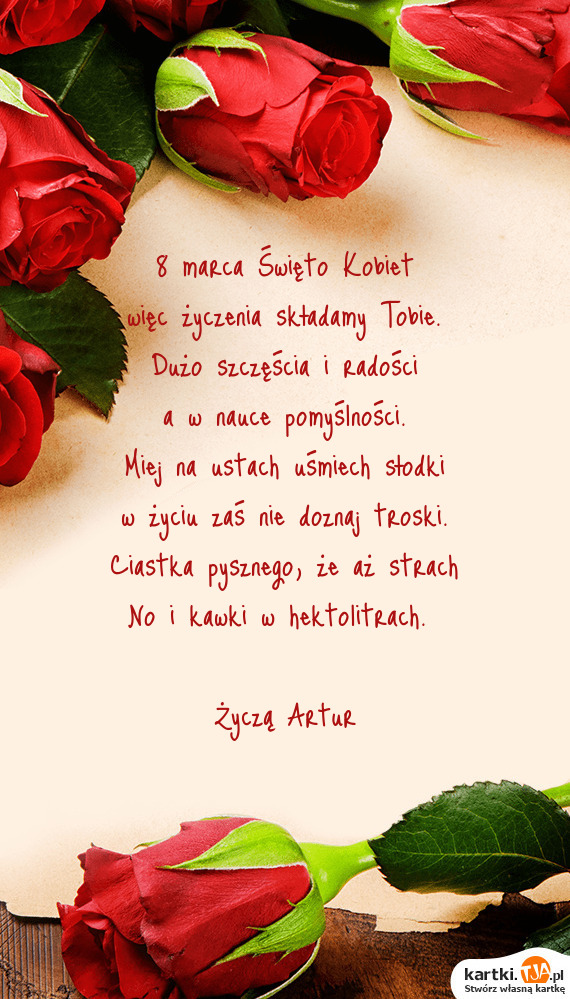 8 marca Święto Kobiet
więc życzenia składamy Tobie.
Dużo szczęścia i radości
a w nauce pomyślności.
Miej na ustach uśmiech słodki
w życiu zaś nie doznaj troski.
Ciastka pysznego, że aż strach
No i kawki w hektolitrach.
Życzą Artur
kartki.TJA.pl
Stwórz własną kartkę